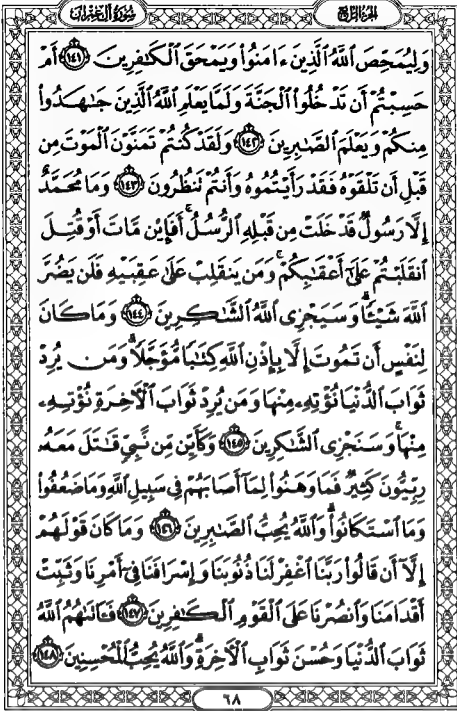 الجزء الرابع سورة آل عمران
وَلِيُمَحِّصَ ٱللَّهُ ٱلَّذِينَ ءَامَنُوا۟ وَيَمْحَقَ ٱلْكَٰفِرِينَ ١٤١ أَمْ
حَسِبْتُمْ أَن تَدْخُلُوا۟ ٱلْجَنَّةَ وَلَمَّا يَعْلَمِ ٱللَّهُ ٱلَّذِينَ جَٰهَدُوا۟
مِنكُمْ وَيَعْلَمَ ٱلصَّٰبِرِينَ ١٤٢ وَلَقَدْ كُنتُمْ تَمَنَّوْنَ ٱلْمَوْتَ مِن
قَبْلِ أَن تَلْقَوْهُ فَقَدْ رَأَيْتُمُوهُ وَأَنتُمْ تَنظُرُونَ ١٤٣ وَمَا مُحَمَّدٌ
إِلَّا رَسُولٌ قَدْ خَلَتْ مِن قَبْلِهِ ٱلرُّسُلُ ۚ أَفَإِي۟ن مَّاتَ أَوْ قُتِلَ
ٱنقَلَبْتُمْ عَلَىٰٓ أَعْقَٰبِكُمْ ۚ وَمَن يَنقَلِبْ عَلَىٰ عَقِبَيْهِ فَلَن يَضُرَّ
ٱللَّهَ شَيْـًٔا ۗ وَسَيَجْزِى ٱللَّهُ ٱلشَّٰكِرِينَ ١٤٤ وَمَا كَانَ
لِنَفْسٍ أَن تَمُوتَ إِلَّا بِإِذْنِ ٱللَّهِ كِتَٰبًا مُّؤَجَّلًا ۗ وَمَن يُرِدْ
ثَوَابَ ٱلدُّنْيَا نُؤْتِهِۦ مِنْهَا وَمَن يُرِدْ ثَوَابَ ٱلْءَاخِرَةِ نُؤْتِهِۦ
مِنْهَا ۚ وَسَنَجْزِى ٱلشَّٰكِرِينَ ١٤٥ وَكَأَيِّن مِّن نَّبِىٍّ قَٰتَلَ مَعَهُۥ
رِبِّيُّونَ كَثِيرٌ فَمَا وَهَنُوا۟ لِمَآ أَصَابَهُمْ فِى سَبِيلِ ٱللَّهِ وَمَا ضَعُفُوا۟
وَمَا ٱسْتَكَانُوا۟ ۗ وَٱللَّهُ يُحِبُّ ٱلصَّٰبِرِينَ ١٤٦ وَمَا كَانَ قَوْلَهُمْ
إِلَّآ أَن قَالُوا۟ رَبَّنَا ٱغْفِرْ لَنَا ذُنُوبَنَا وَإِسْرَافَنَا فِىٓ أَمْرِنَا وَثَبِّتْ
أَقْدَامَنَا وَٱنصُرْنَا عَلَى ٱلْقَوْمِ ٱلْكَٰفِرِينَ ١٤٧ فَـَٔاتَىٰهُمُ ٱللَّهُ
ثَوَابَ ٱلدُّنْيَا وَحُسْنَ ثَوَابِ ٱلْءَاخِرَةِ ۗ وَٱللَّهُ يُحِبُّ ٱلْمُحْسِنِينَ ١٤٨
٦٨